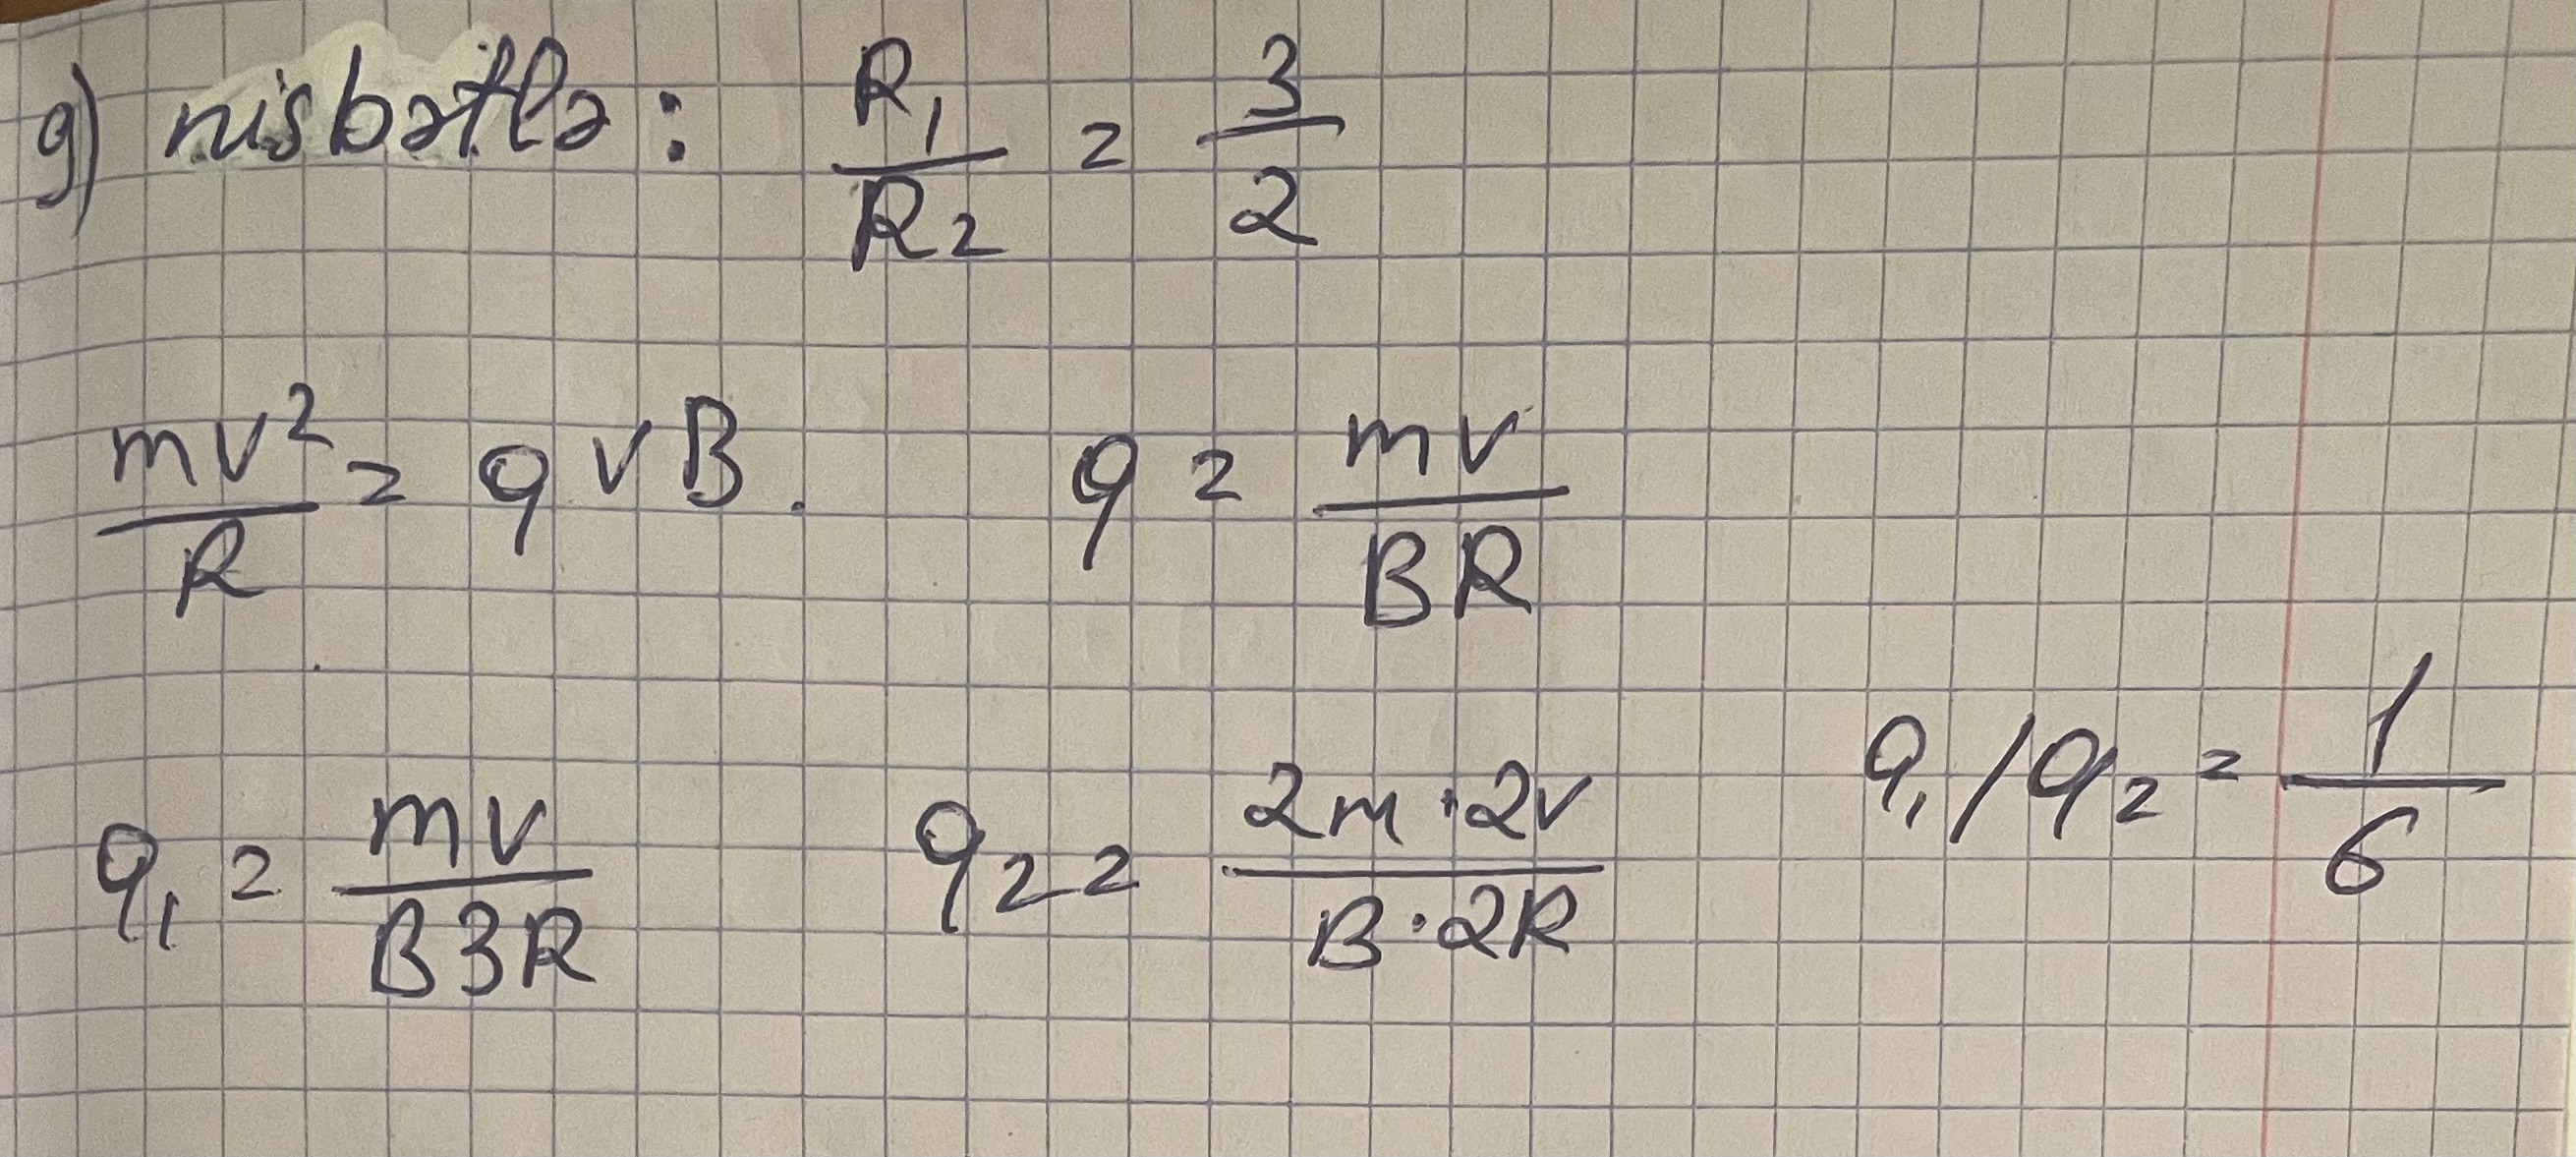 g) nisbətlə: R₁/R₂ = 3/2
mv²/R = qvB. q = mv/BR
q₁ = mv/B3R q₂ = 2m·2v/B·2R q₁/q₂ = 1/6